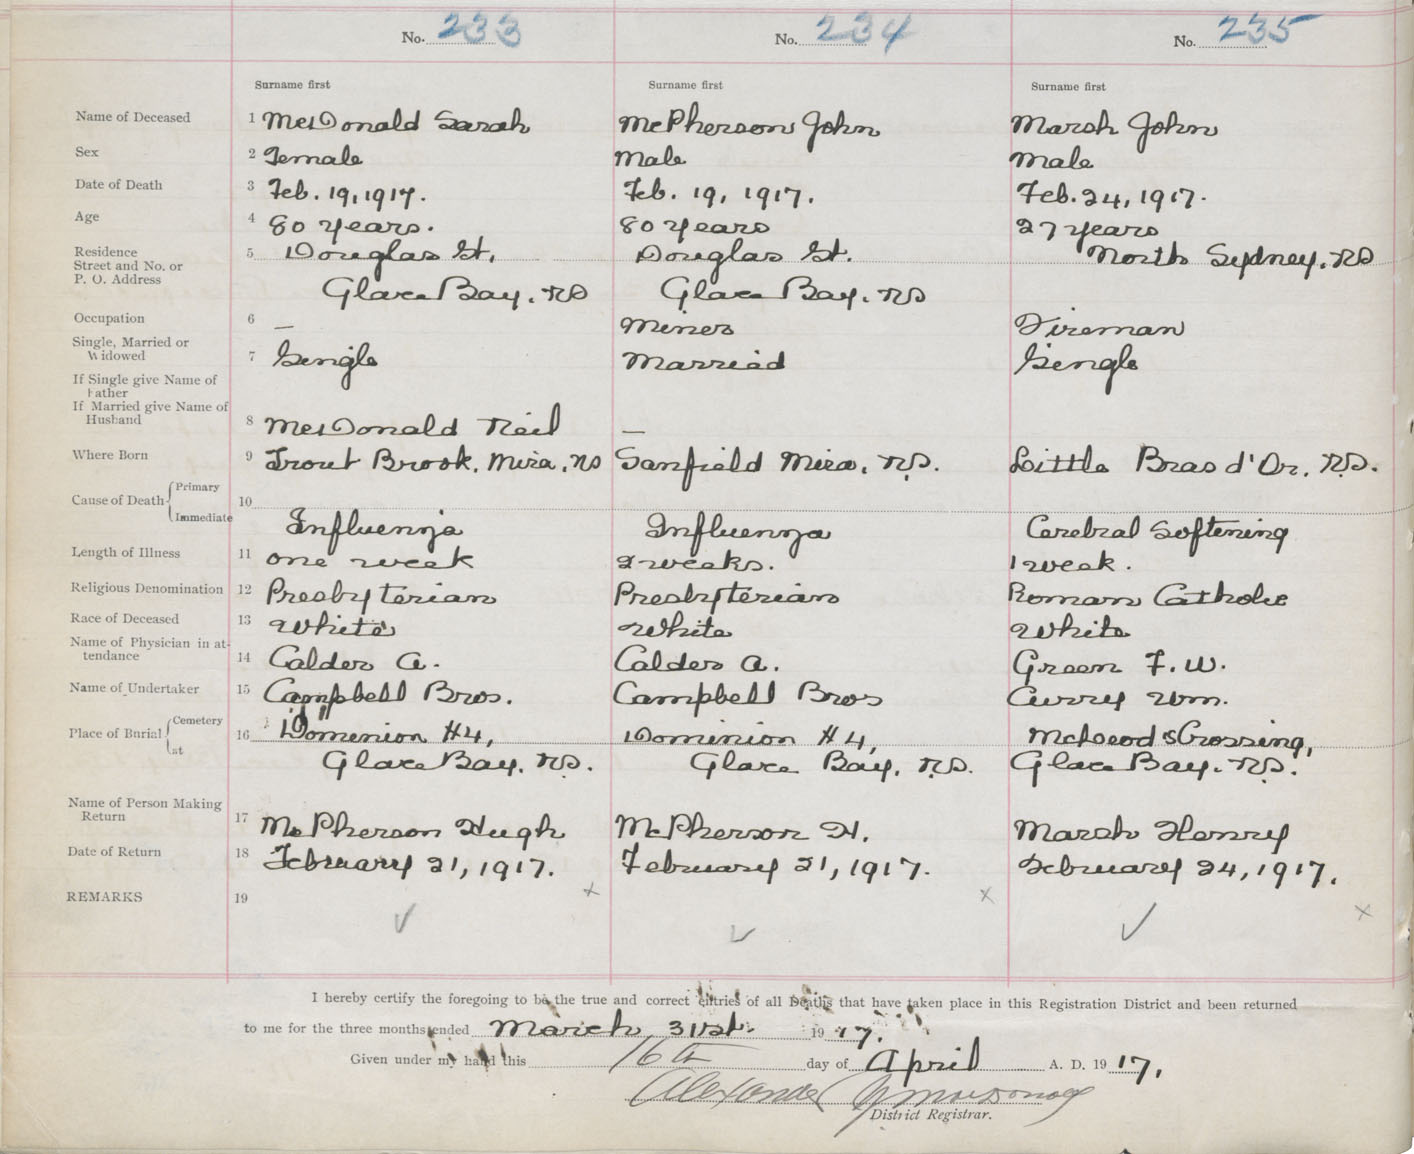 No. 233 No. 234 No. 235
Surname first Surname first Surname first
Name of Deceased 1 MacDonald Sarah McPherson John Marsh John
Sex 2 Female Male Male
Date of Death 3 Feb. 19, 1917. Feb. 19, 1917. Feb. 24, 1917.
Age 4 80 years. 80 years 27 years
Residence
Street and No. or 5 Douglas St, Douglas St. North Sydney, NS
P. O. Address Glace Bay, NS Glace Bay, NS
Occupation 6 — Miner Fireman
Single, Married or
Widowed 7 Single Married Single
If Single give Name of
Father
If Married give Name of
Husband 8 MacDonald Neil —
Where Born 9 Trout Brook, Mira, NS Sanfield Mira, N.S. Little Bras d'Or, N.S.
Cause of Death Primary 10
Immediate Influenza Influenza Cerebral Softening
Length of Illness 11 one week 2 weeks. 1 week.
Religious Denomination 12 Presbyterian Presbyterian Roman Catholic
Race of Deceased 13 White White White
Name of Physician in at-
tendance 14 Calder A. Calder A. Green F. W.
Name of Undertaker 15 Campbell Bros. Campbell Bros Curry Wm.
Place of Burial Cemetery 16 Dominion #4, Dominion #4, McLeod's Crossing,
at Glace Bay, N.S. Glace Bay, N.S. Glace Bay, N.S.
Name of Person Making
Return 17 McPherson Hugh McPherson H. Marsh Henry
Date of Return 18 February 21, 1917. February 21, 1917. February 24, 1917.
REMARKS 19
I hereby certify the foregoing to be the true and correct entries of all Deaths that have taken place in this Registration District and been returned
to me for the three months ended March 31st. 1917.
Given under my hand this 16th day of April A. D. 1917.
Alexander
District Registrar.